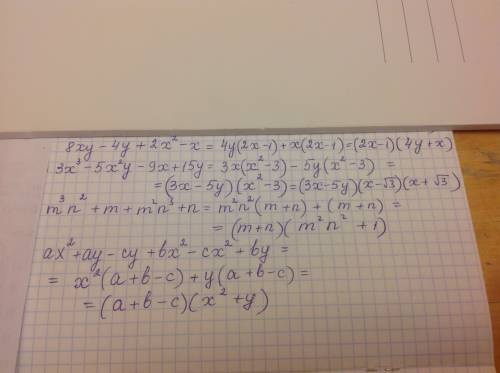 8xy - 4y + 2x² - x = 4y(2x-1) + x(2x-1) = (2x-1)(4y+x)
3x³ - 5x²y - 9x + 15y = 3x(x²-3) - 5y(x²-3) =
= (3x-5y)(x²-3) = (3x-5y)(x-√3)(x+√3)
m³n² + m + m²n³ + n = m²n²(m+n) + (m+n) =
= (m+n)(m²n² + 1)
ax² + ay - cy + bx² - cx² + by =
= x²(a+b-c) + y(a+b-c) =
= (a+b-c)(x²+y)